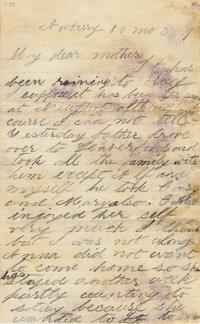 Newbury 10 mo 26
My dear mother
It has
been raining to day
I suppose it has been
at Newport although of
course I can not tell
Yesterday father drove
over to
took all the family with
him except A A and
myself he took
and Mary also.
injoyed her self
very much I think
but I was not along
Anna did not want
to come home so she
has stayed another week
partly wanting to
stay because she
wanted to go to